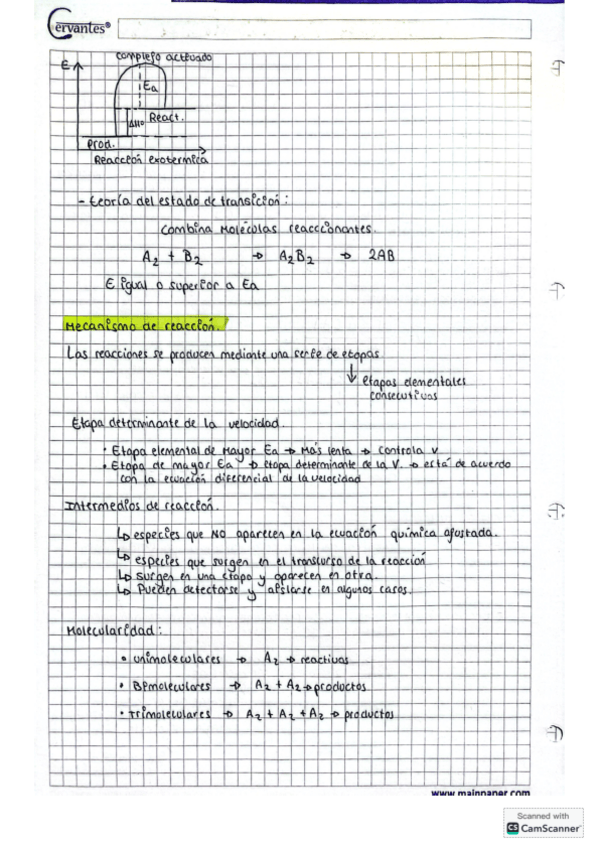 Cervantes®
complejo activado
E
Ea
ΔHº React.
Prod.
Reacción exotermica
- teoría del estado de transición:
Combina Moléculas reaccionantes.
A₂ + B₂ → A₂B₂ → 2AB
E igual o superior a Ea
Mecanismo de reacción.
Las reacciones se producen mediante una serie de etapas
↓ etapas elementales
consecutivas
Etapa determinante de la velocidad.
• Etapa elemental de Mayor Ea → Más lenta → controla v
• Etapa de mayor Ea → etapa determinante de la V. → está de acuerdo
con la ecuación diferencial de la velocidad
Intermedios de reacción.
↳ especies que NO aparecen en la ecuación química ajustada.
↳ especies que surgen en el transcurso de la reacción
↳ surgen en una etapa y aparecen en otra.
↳ Pueden detectarse y aislarse en algunos casos.
Molecularidad:
• unimoleculares → A₂ → reactivos
• Bimoleculares → A₂ + A₂ → productos
• trimoleculares → A₂ + A₂ + A₂ → productos
www.mainpaper.com
Scanned with
CS CamScanner